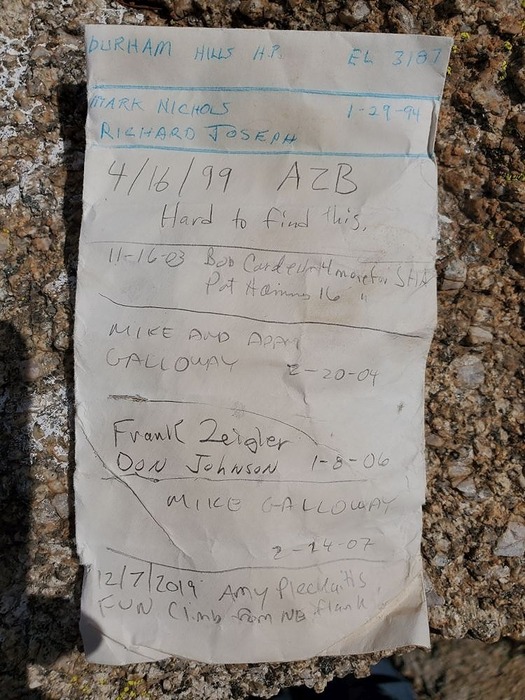 DURHAM HILLS H.P. EL 3187
MARK NICHOLS 1-29-94
RICHARD JOSEPH
4/16/99 AZB
Hard to find this.
11-16-03 Bob 14 more for
Pat 16 "
MIKE AND ADAM
GALLOWAY 2-20-04
Frank Zeigler
DON JOHNSON 1-8-06
MIKE GALLOWAY
2-14-07
12/7/2019 Amy
FUN Climb from NE flank